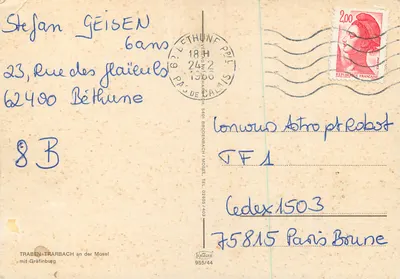 Stefan GEISEN
6ans
23, Rue des Glaïeuls
62400 Béthune
8 B
TRABEN-TRARBACH an der Mosel
mit Gräfinburg
BETHUNE PPL
18H
24-2
1986
PAS DE CALAIS
2,00
REPUBLIQUE FRANCAISE
955/44
Concours Astro pt Robot
TF1
Cedex 1503
75815 Paris Brune